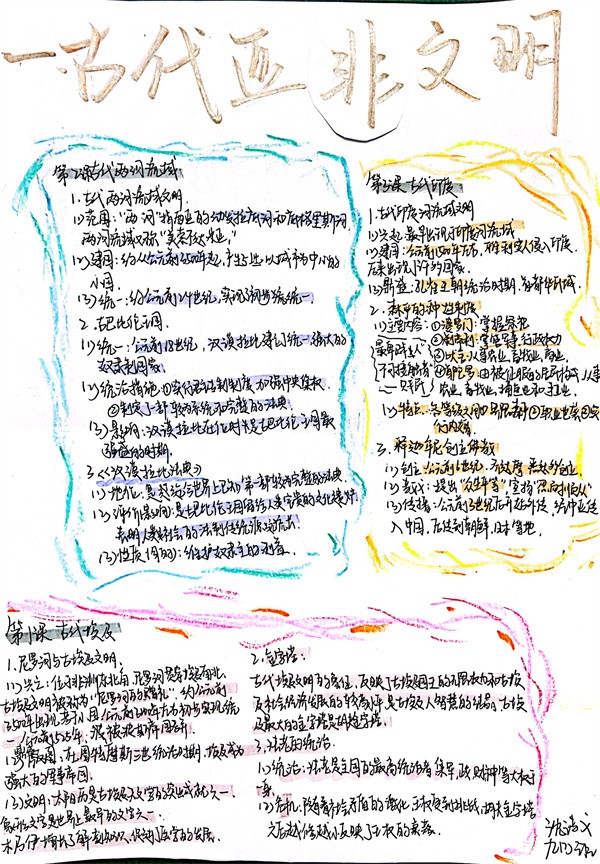 一.古代亚非文明
第2课古代两河流域
1.古代两河流域文明
(1)范围:"两河"指西亚的幼发拉底河和底格里斯河,
两河流域又称"美索不达米亚"。
(2)建国:约从公元前3500年起,产生出以城市为中心的
小国
(3)统一:约公元前24世纪,实现初步统一
2.古巴比伦王国
(1)统一:公元前18世纪,汉谟拉比建立统一强大的
奴隶制国家
(2)统治措施:①实行君主专制制度,加强中央集权
②制定了一部较为系统和完整的法典
(3)影响:汉谟拉比在位时是古巴比伦王国最
强盛的时期。
3.《汉谟拉比法典》
(1)地位:是迄今世界上已知第一部较为完整的法典
(2)评价影响:是古巴比伦王国留给人类宝贵的文化遗产
表明人类社会的法制传统源远流长
(3)性质(目的):维护奴隶主的利益。
第3课 古代印度
1.古代印度河流域文明
(1)兴起:最早出现于印度河流域
(2)建国:公元前1500年左右,雅利安人侵入印度,
后来出现小的国家
(3)孔雀王朝统治时期,
2.森严的种姓制度
①婆罗门:掌握祭祀
②刹帝利:掌管军事、行政权力
③吠舍:从事农业、畜牧业、商业,
④首陀罗:由被征服的居民构成,从事
农业、畜牧业、捕鱼业和手工业,
3.释迦牟尼创立佛教
(1)创立:公元前6世纪,古印度,乔达摩·悉达多创立
(2)教义:提出"众生平等",宣扬"忍耐顺从"
(3)传播:公元前3世纪后开始外传,经中亚传
入中国,后传到朝鲜、日本等地
第1课 古代埃及
1.尼罗河与古埃及文明。
(1)兴亡:位于非洲东北角,尼罗河贯穿埃及南北,
古埃及文明被称为"尼罗河的赠礼"。约公元前
3500年出现若干小国,公元前3100年左右初步实现统
一,公元前525年,被波斯帝国吞并
(2)军事帝国:在图特摩斯三世统治时期,埃及成为
强大的军事帝国。
(3)文明:太阳历是古埃及天文学的突出成就之一
象形文字是世界上最早的文字之一
木乃伊增长了解剖知识,促进医学的发展。
2.金字塔:
古代埃及文明的象征,反映了古埃及国王的无限权力和古埃
及社会经济发展的较高水平,是古埃及人智慧的结晶,古埃
及最大的金字塔是胡夫金字塔。
3.法老的统治
(1)统治:法老是全国的最高统治者,集军,政,财,神等大权于
一身。
(2)危机:随着社会矛盾的激化,王权受到挑战,胡夫后金字塔
越修越小反映了王权的衰落。